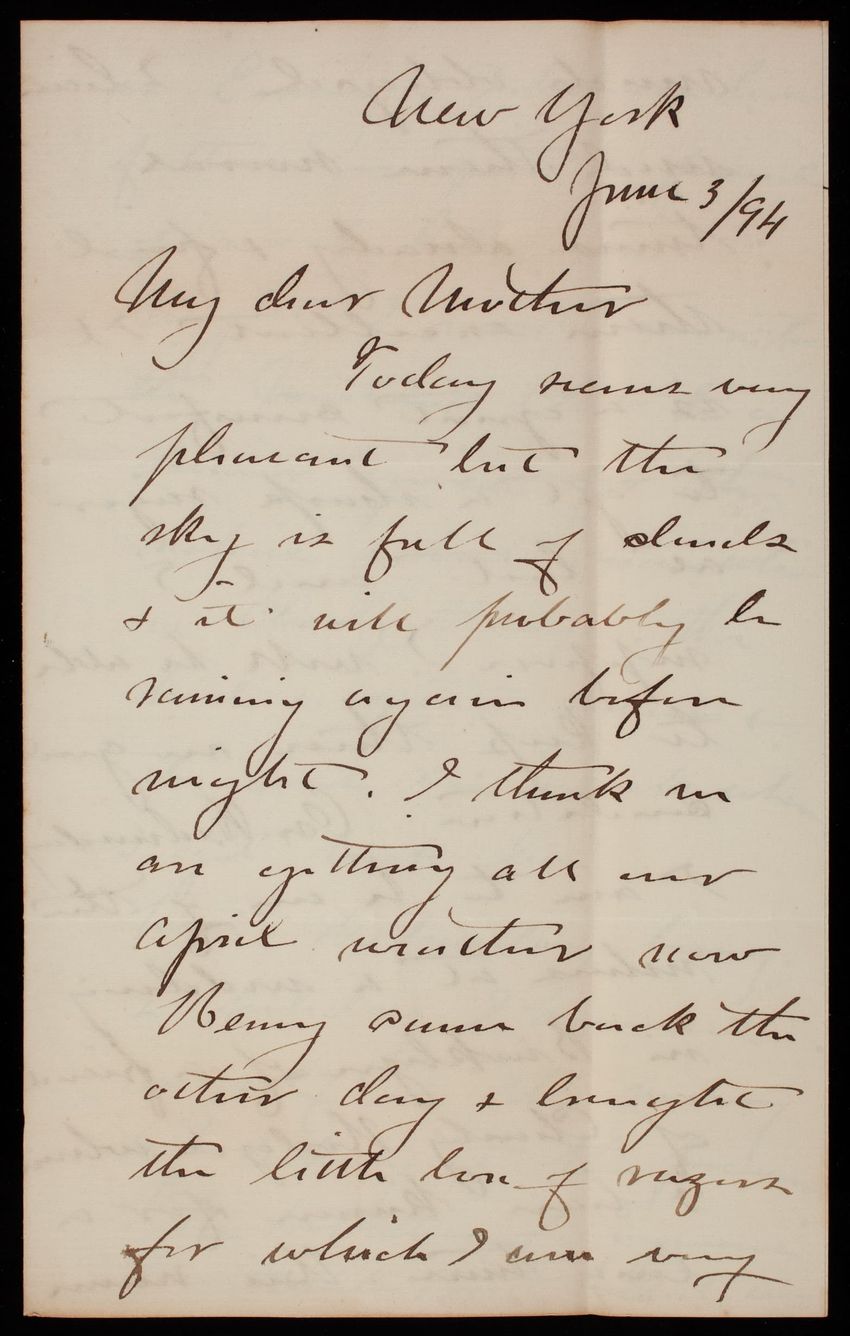 New York
June 3/94
My dear Mother
Today seems very
pleasant but the
sky is full of clouds
& it will probably be
raining again before
night. I think we
are getting all our
April weather now
Henry came back the
other day & brought
the little box of razors
for which I am very